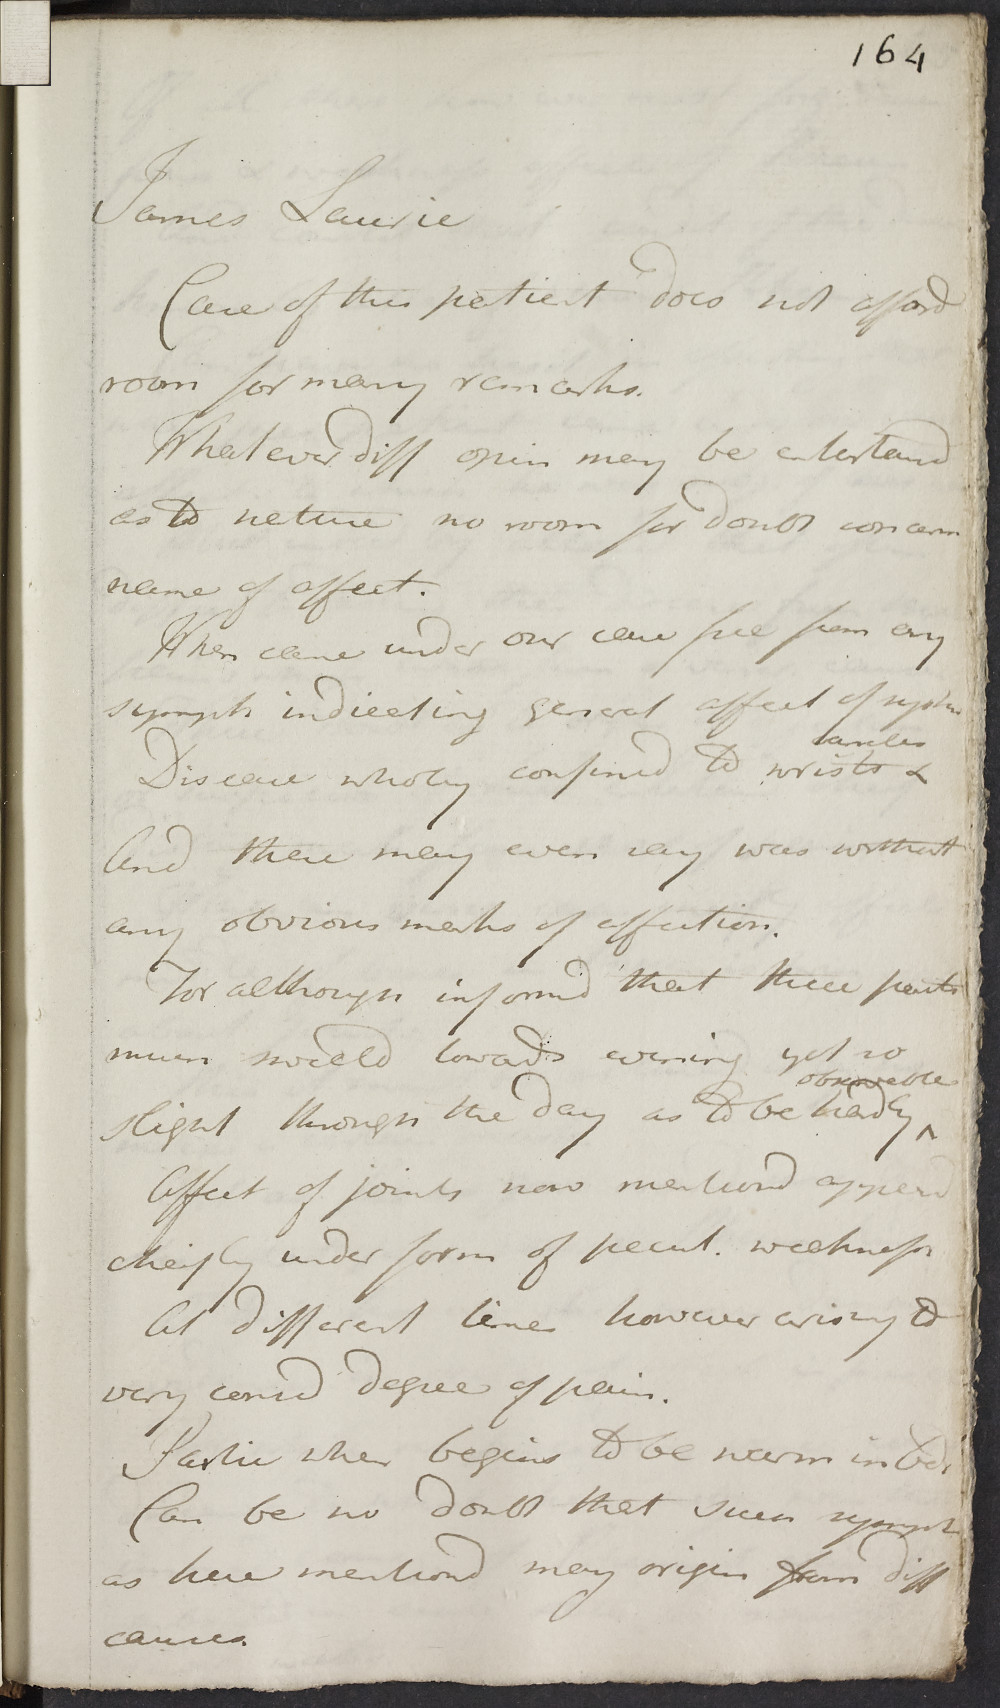 164
James Laurie
Case of this patient does not afford
room for many remarks.
Whatever diff opin may be entertaind
as to nature no room for doubt concern
name of affect.
When came under our care free from any
sympts indicating general affect of system
ankles
Disease wholy confined to wrists &
And there may even say was without
any obvious marks of affection.
For although informd that these parts
much swelld towards evening yet so
observable
slight through the day as to be hardly ^
Affect of joints now mentiond appeard
cheifly under form of pecul. weakness
At different times however arising to
very consid degree of pain.
Partic when begins to be warm in bed
Can be no doubt that such sympt
as here mentiond may origin from diff
causes.